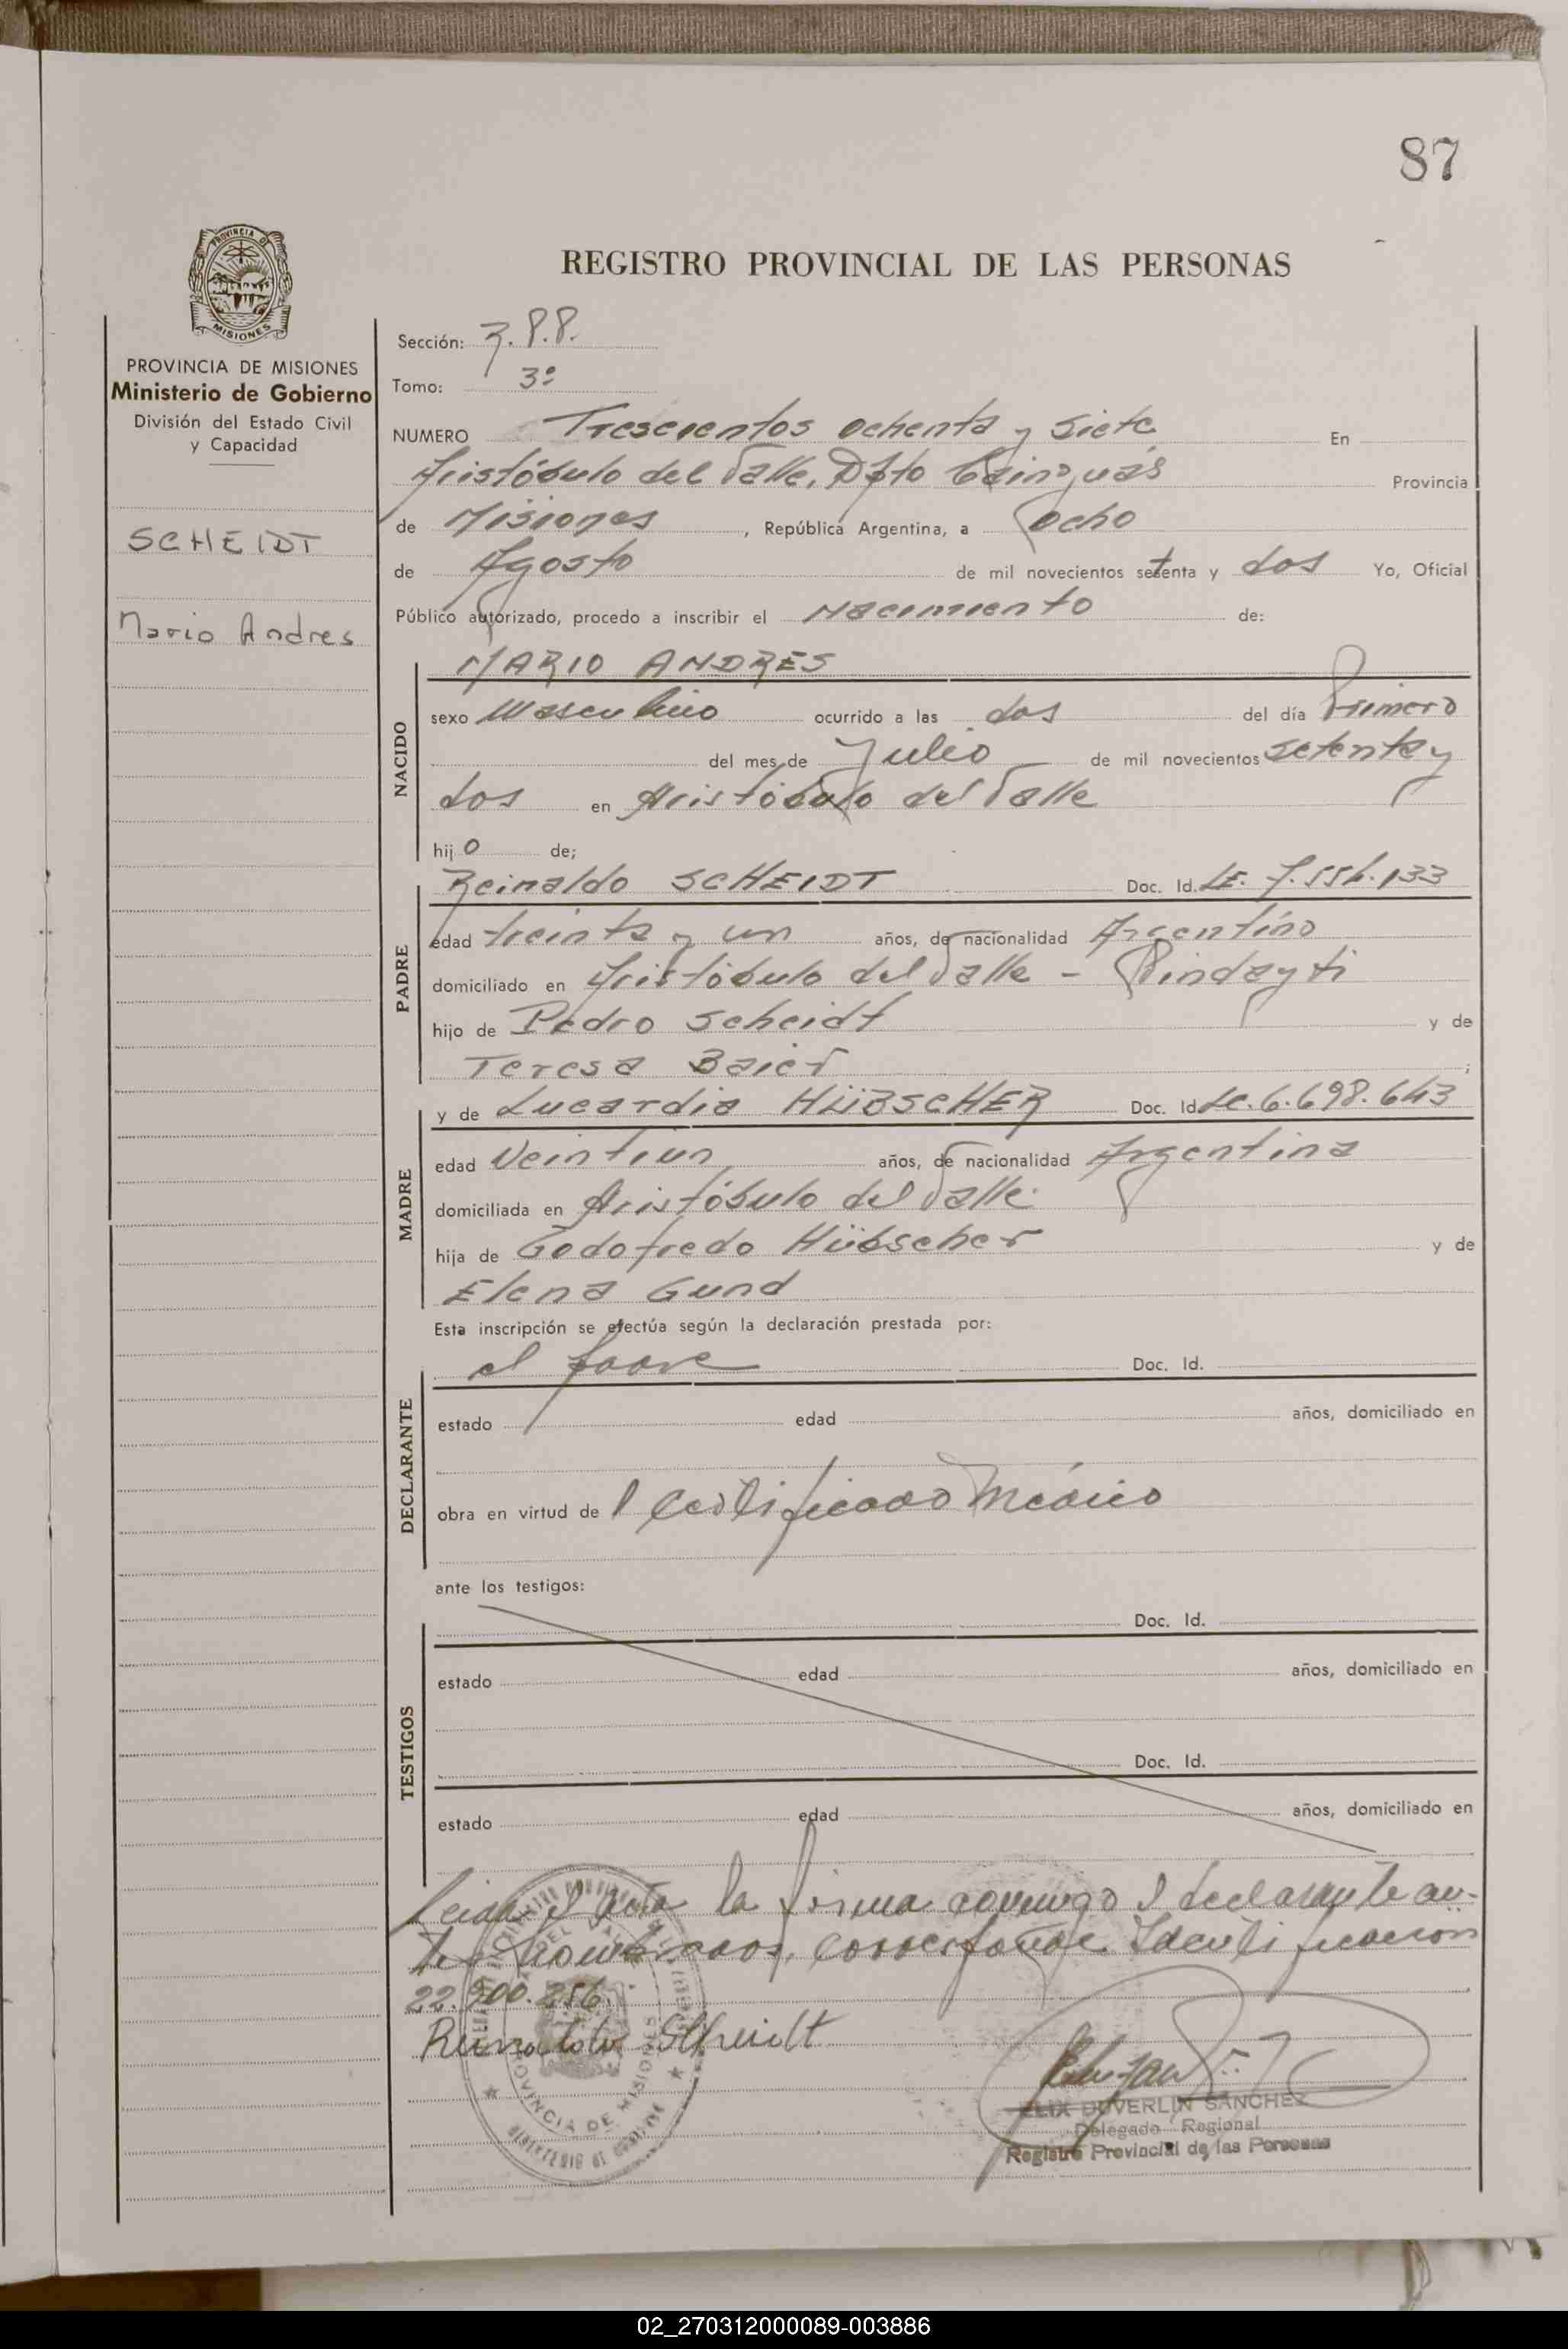 87
PROVINCIA DE
MISIONES
REGISTRO PROVINCIAL DE LAS PERSONAS
PROVINCIA DE MISIONES
Ministerio de Gobierno
División del Estado Civil
y Capacidad
SCHEIDT
Mario Andres
Sección: R.P.P.
Tomo: 3º
NUMERO Trescientos ochenta y siete En
Aristóbulo del Valle, Dpto Cainguás Provincia
de Misiones, República Argentina, a ocho
de Agosto de mil novecientos setenta y dos Yo, Oficial
Público autorizado, procedo a inscribir el Nacimiento de:
NACIDO
MARIO ANDRES
sexo Masculino ocurrido a las dos del día Primero
del mes de Julio de mil novecientos setenta y
dos en Aristóbulo del Valle
hijo de;
PADRE
Reinaldo SCHEIDT Doc. Id. LE. 7.556.133
edad treinta y un años, de nacionalidad Argentino
domiciliado en Aristóbulo del Valle - Pindayti
hijo de Pedro Scheidt y de
Teresa Baier;
MADRE
y de Lucardia HÜBSCHER Doc. Id. LC. 6.698.643
edad Veintiun años, de nacionalidad Argentina
domiciliada en Aristóbulo del Valle.
hija de Godofredo Hübscher y de
Elena Gund
Esta inscripción se efectúa según la declaración prestada por:
DECLARANTE
el padre Doc. Id.
estado edad años, domiciliado en
obra en virtud de l Certificado Médico
ante los testigos:
TESTIGOS
Doc. Id.
estado edad años, domiciliado en
Doc. Id.
estado edad años, domiciliado en
Leida el acta la firma conmigo el declarante an-
tes nombrados, corresponde Identificación
22.900.256
Reinaldo Scheidt
PROVINCIA DE MISIONES
FELIX DUVERLIN SANCHEZ
Delegado Regional
Registro Provincial de las Personas
02_270312000089-003886